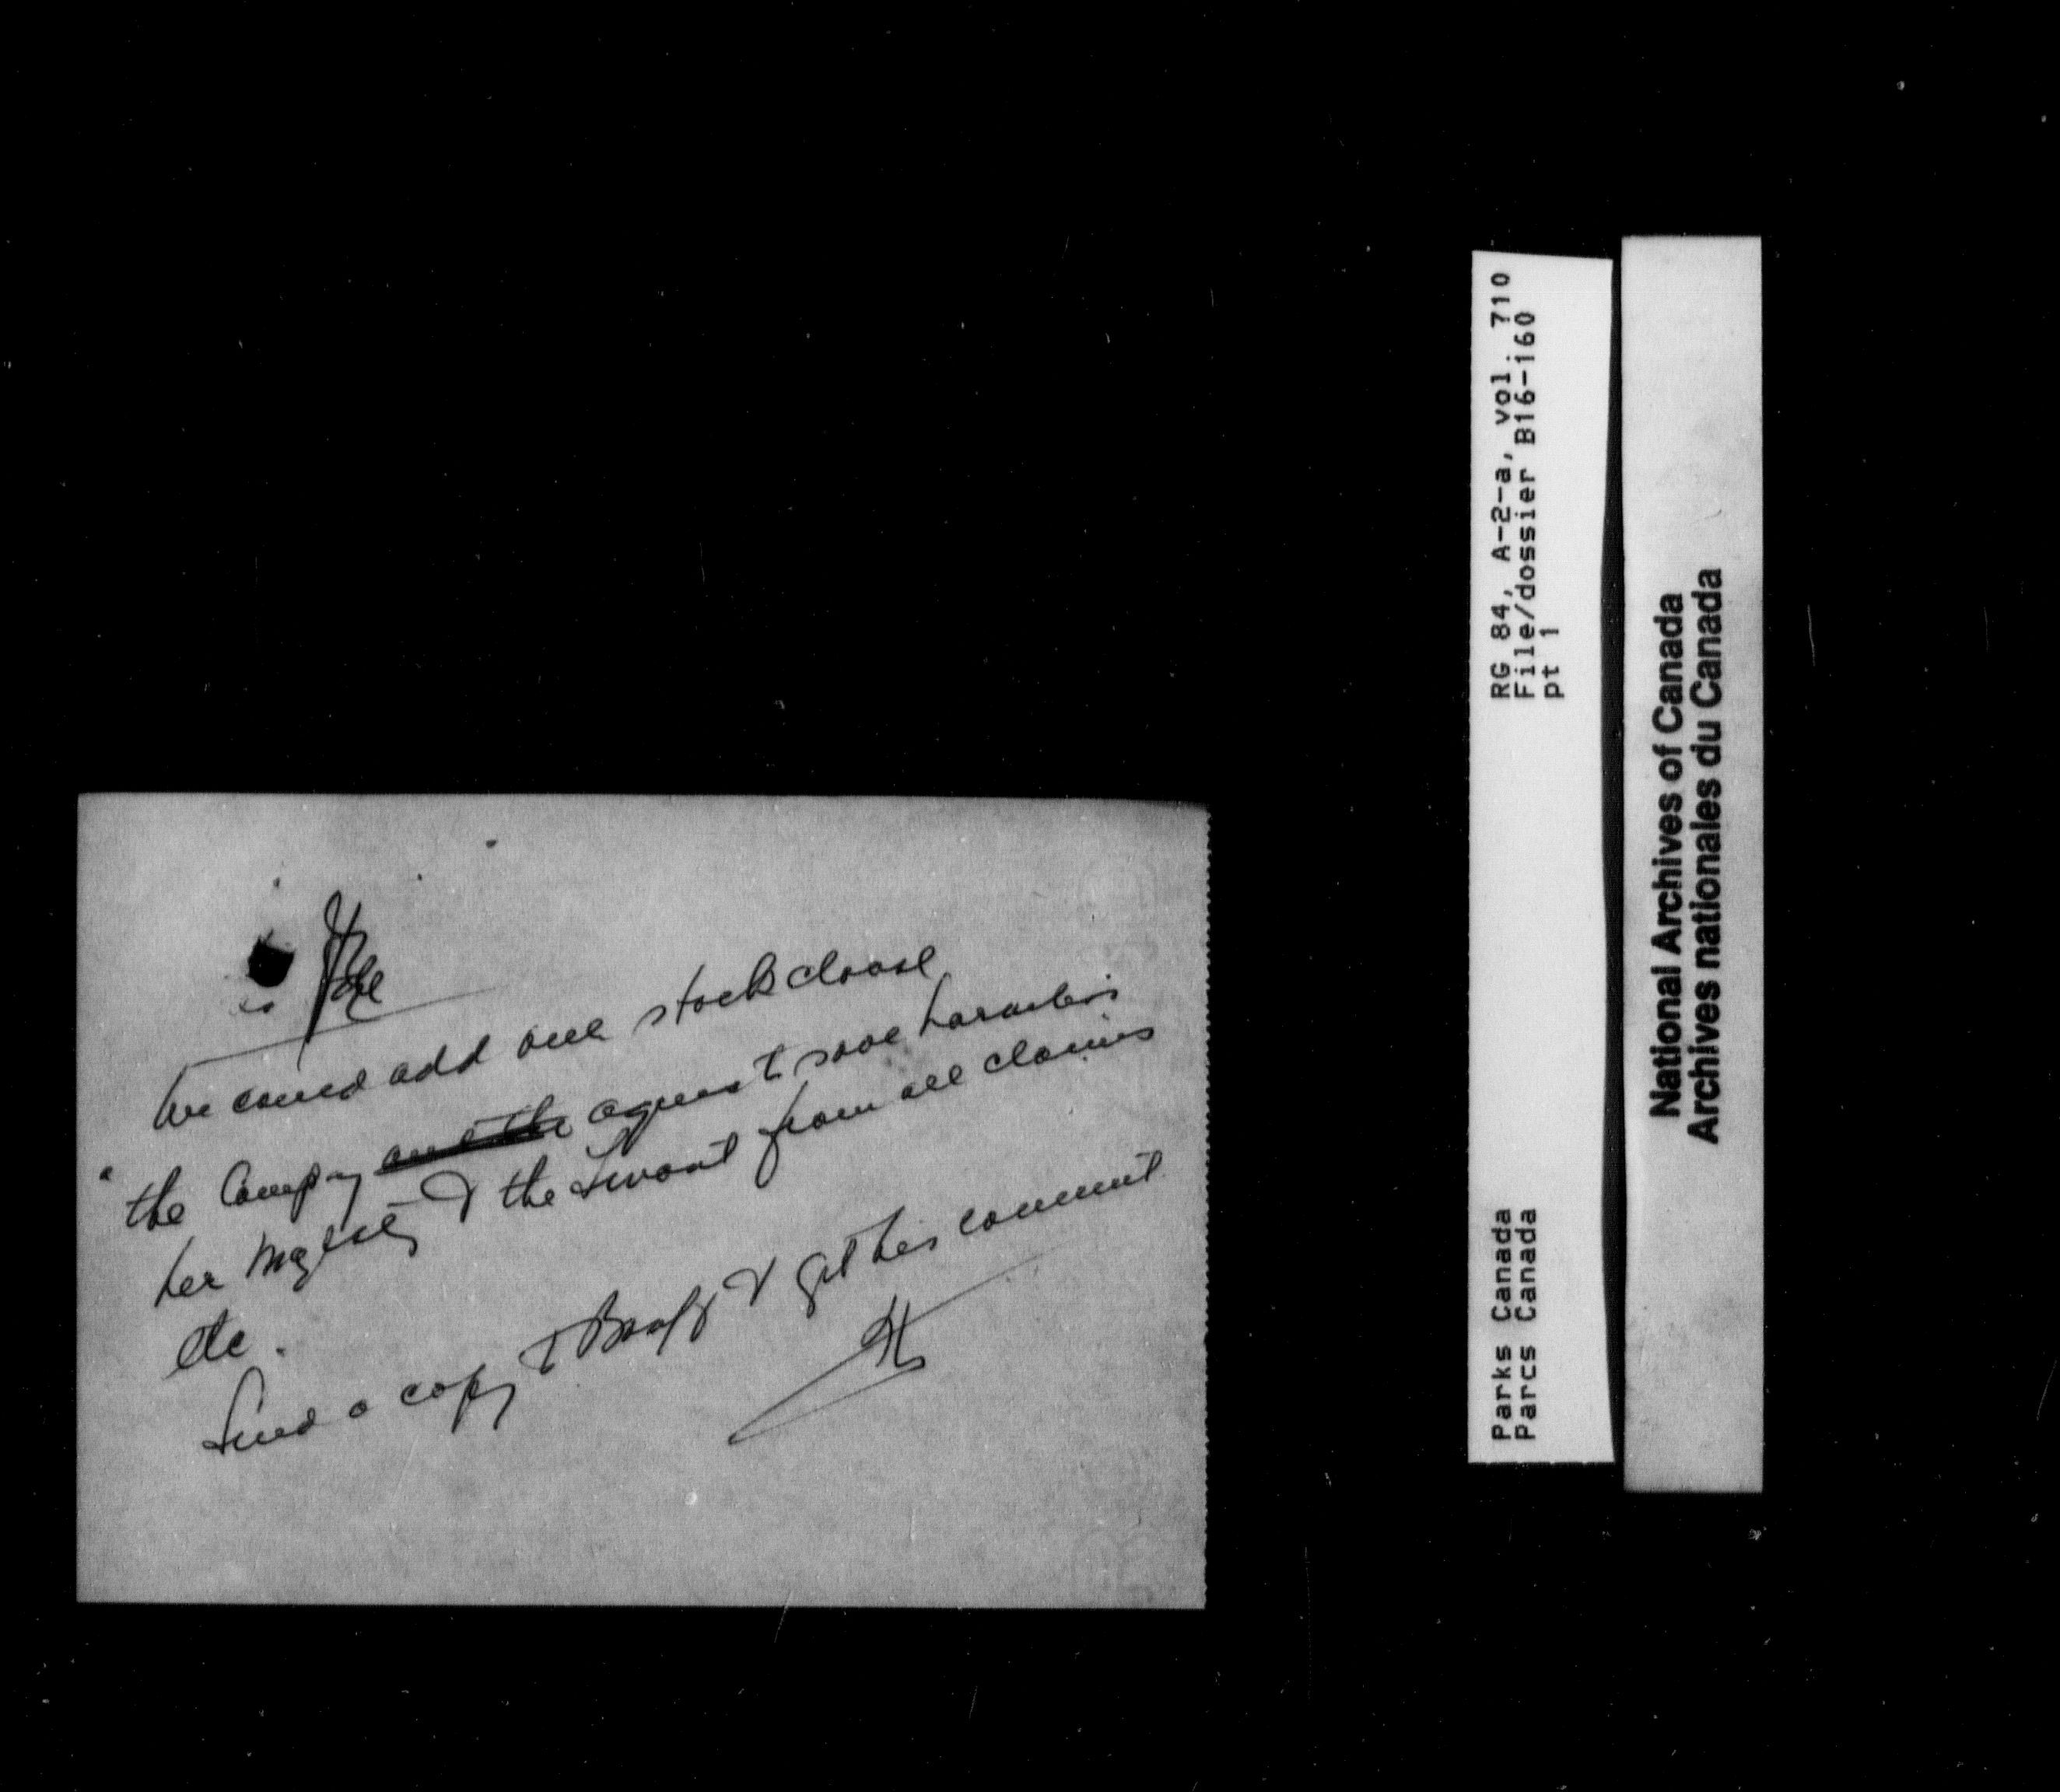 We could add our stock clause
"the Company and the agrees to save harmless
her Majesty & the Servant from all claims
etc.
Send a copy to & get his comment
H
RG 84, A-2-a, vol. 710
File/dossier B16-160
pt 1
Parks Canada
Parcs Canada
National Archives of Canada
Archives nationales du Canada